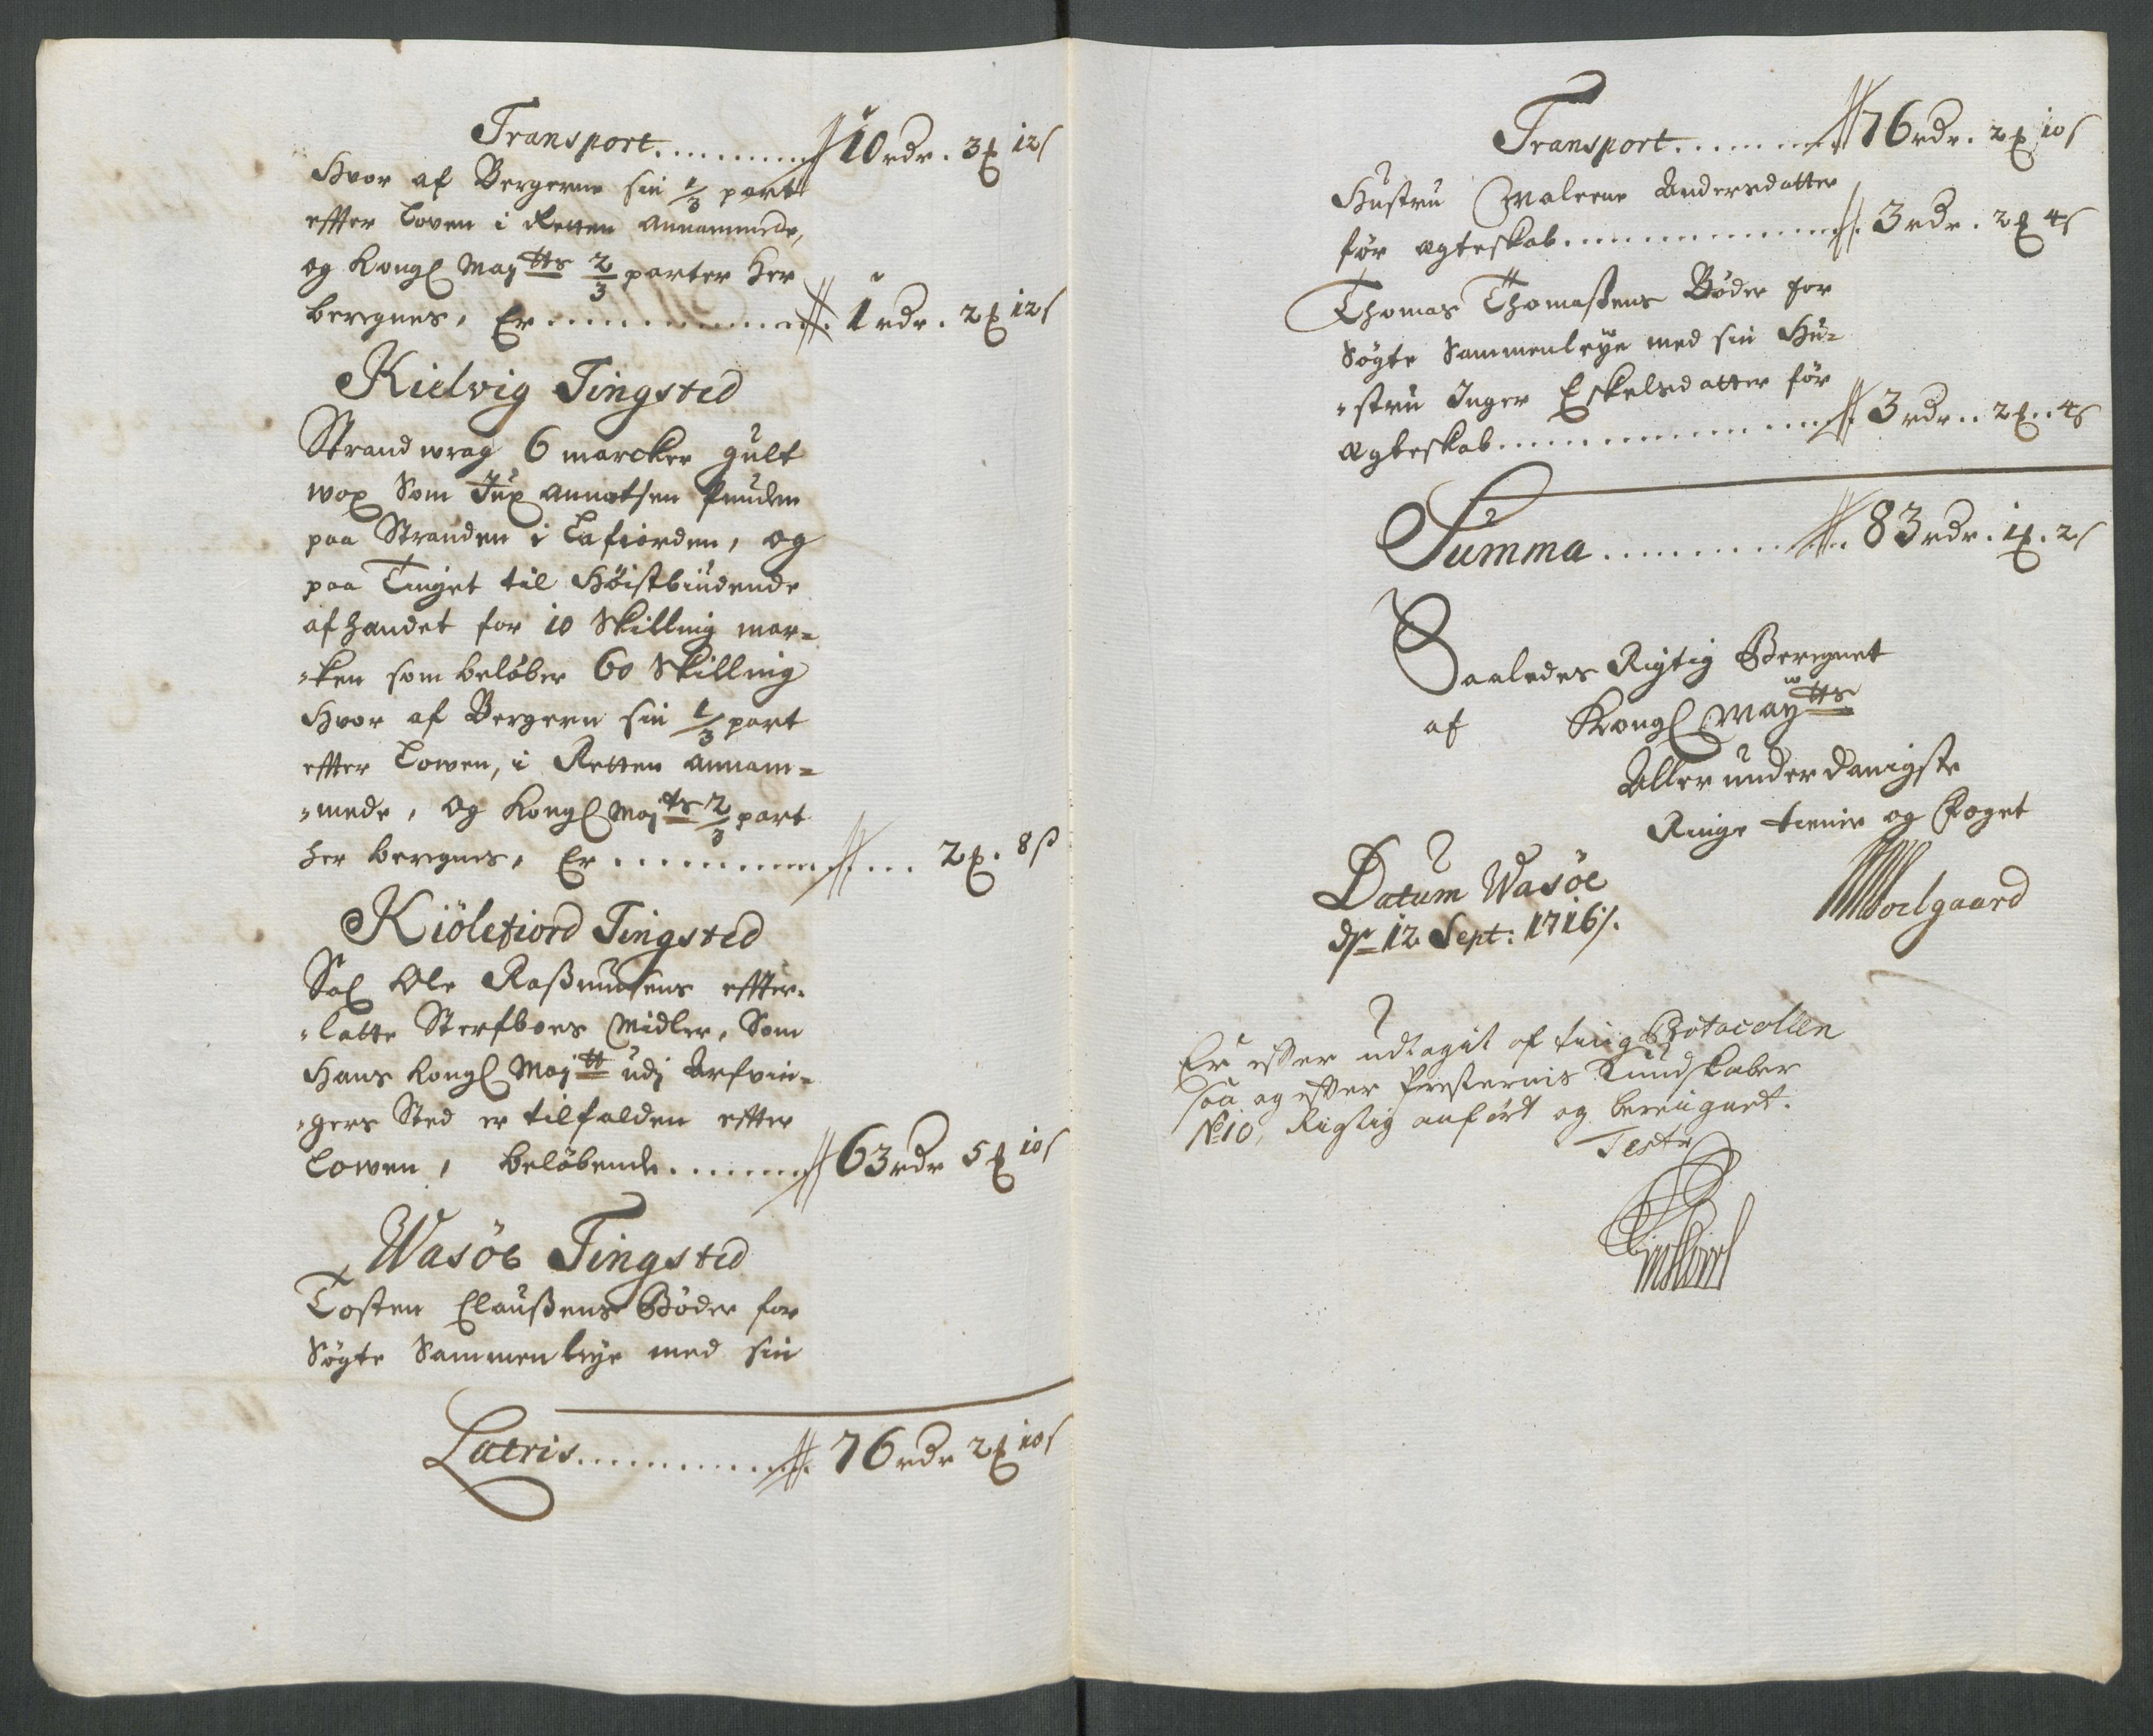 Transport.......... 10 rdr. 3 ₰ 12 s
Hvor af Bergerne sin 1/3 part
effter Loven i Retten annammede,
og Kongl May tts 2/3 parter her
beregnes, Er ............ 1 rdr. 2 ₰ 12 s
Kielvig Tingsted
Strand wrag 6 marcker gult
wox som annatsen funden
paa Stranden i Lafiorden, og
paa Tinget til Høistbiudende
afhandet for 10 Skilling mar=
=ken som beløber 60 Skilling
Hvor af Bergern sin 1/3 part
effter Lowen, i Retten annam=
=mede, og Kongl May ts 2/3 part
her beregnes, Er ............ 2 ₰. 8 s
Kiölefiord Tingsted
Sal Ole Raßmusens effter=
=latte Sterfboes Midler, Som
Hans Kongl May tt udj Arfvin=
=gers Sted er tilfalden effter
Lowen, beløbende........ 63 rdr 5 ₰ 10 s
Wasöe Tingsted
Tosten Claußens Bøder for
Søgte Sammenleye med sin
Lateris............ 76 rdr 2 ₰ 10 s
Transport........ 76 rdr. 2 ₰ 10 s
Hustru Maleene Andersdatter
før ægteskab............ 3 rdr. 2 ₰ 4 s
Thomas Thomaßens Bøder for
Søgte Sammenleye med sin Hu=
=stru Inger Eskelsdatter før
ægteskab............ 3 rdr.. 2 ₰.. 4 s
Summa .......... 83 rdr. 1 ₰. 2 s
Saaledes Rigtig Beregnet
af Kongl May tts
Aller underdanigste
Ringe tienner og Foget
Datum Wasöe
ds 12 Sept: 1716 /.
Soelgaard
Er effter udtagit af ting Protocollen
saa og effter Presternis Kundskaber
No 10, Rigtig anført og bereignet.
Teste